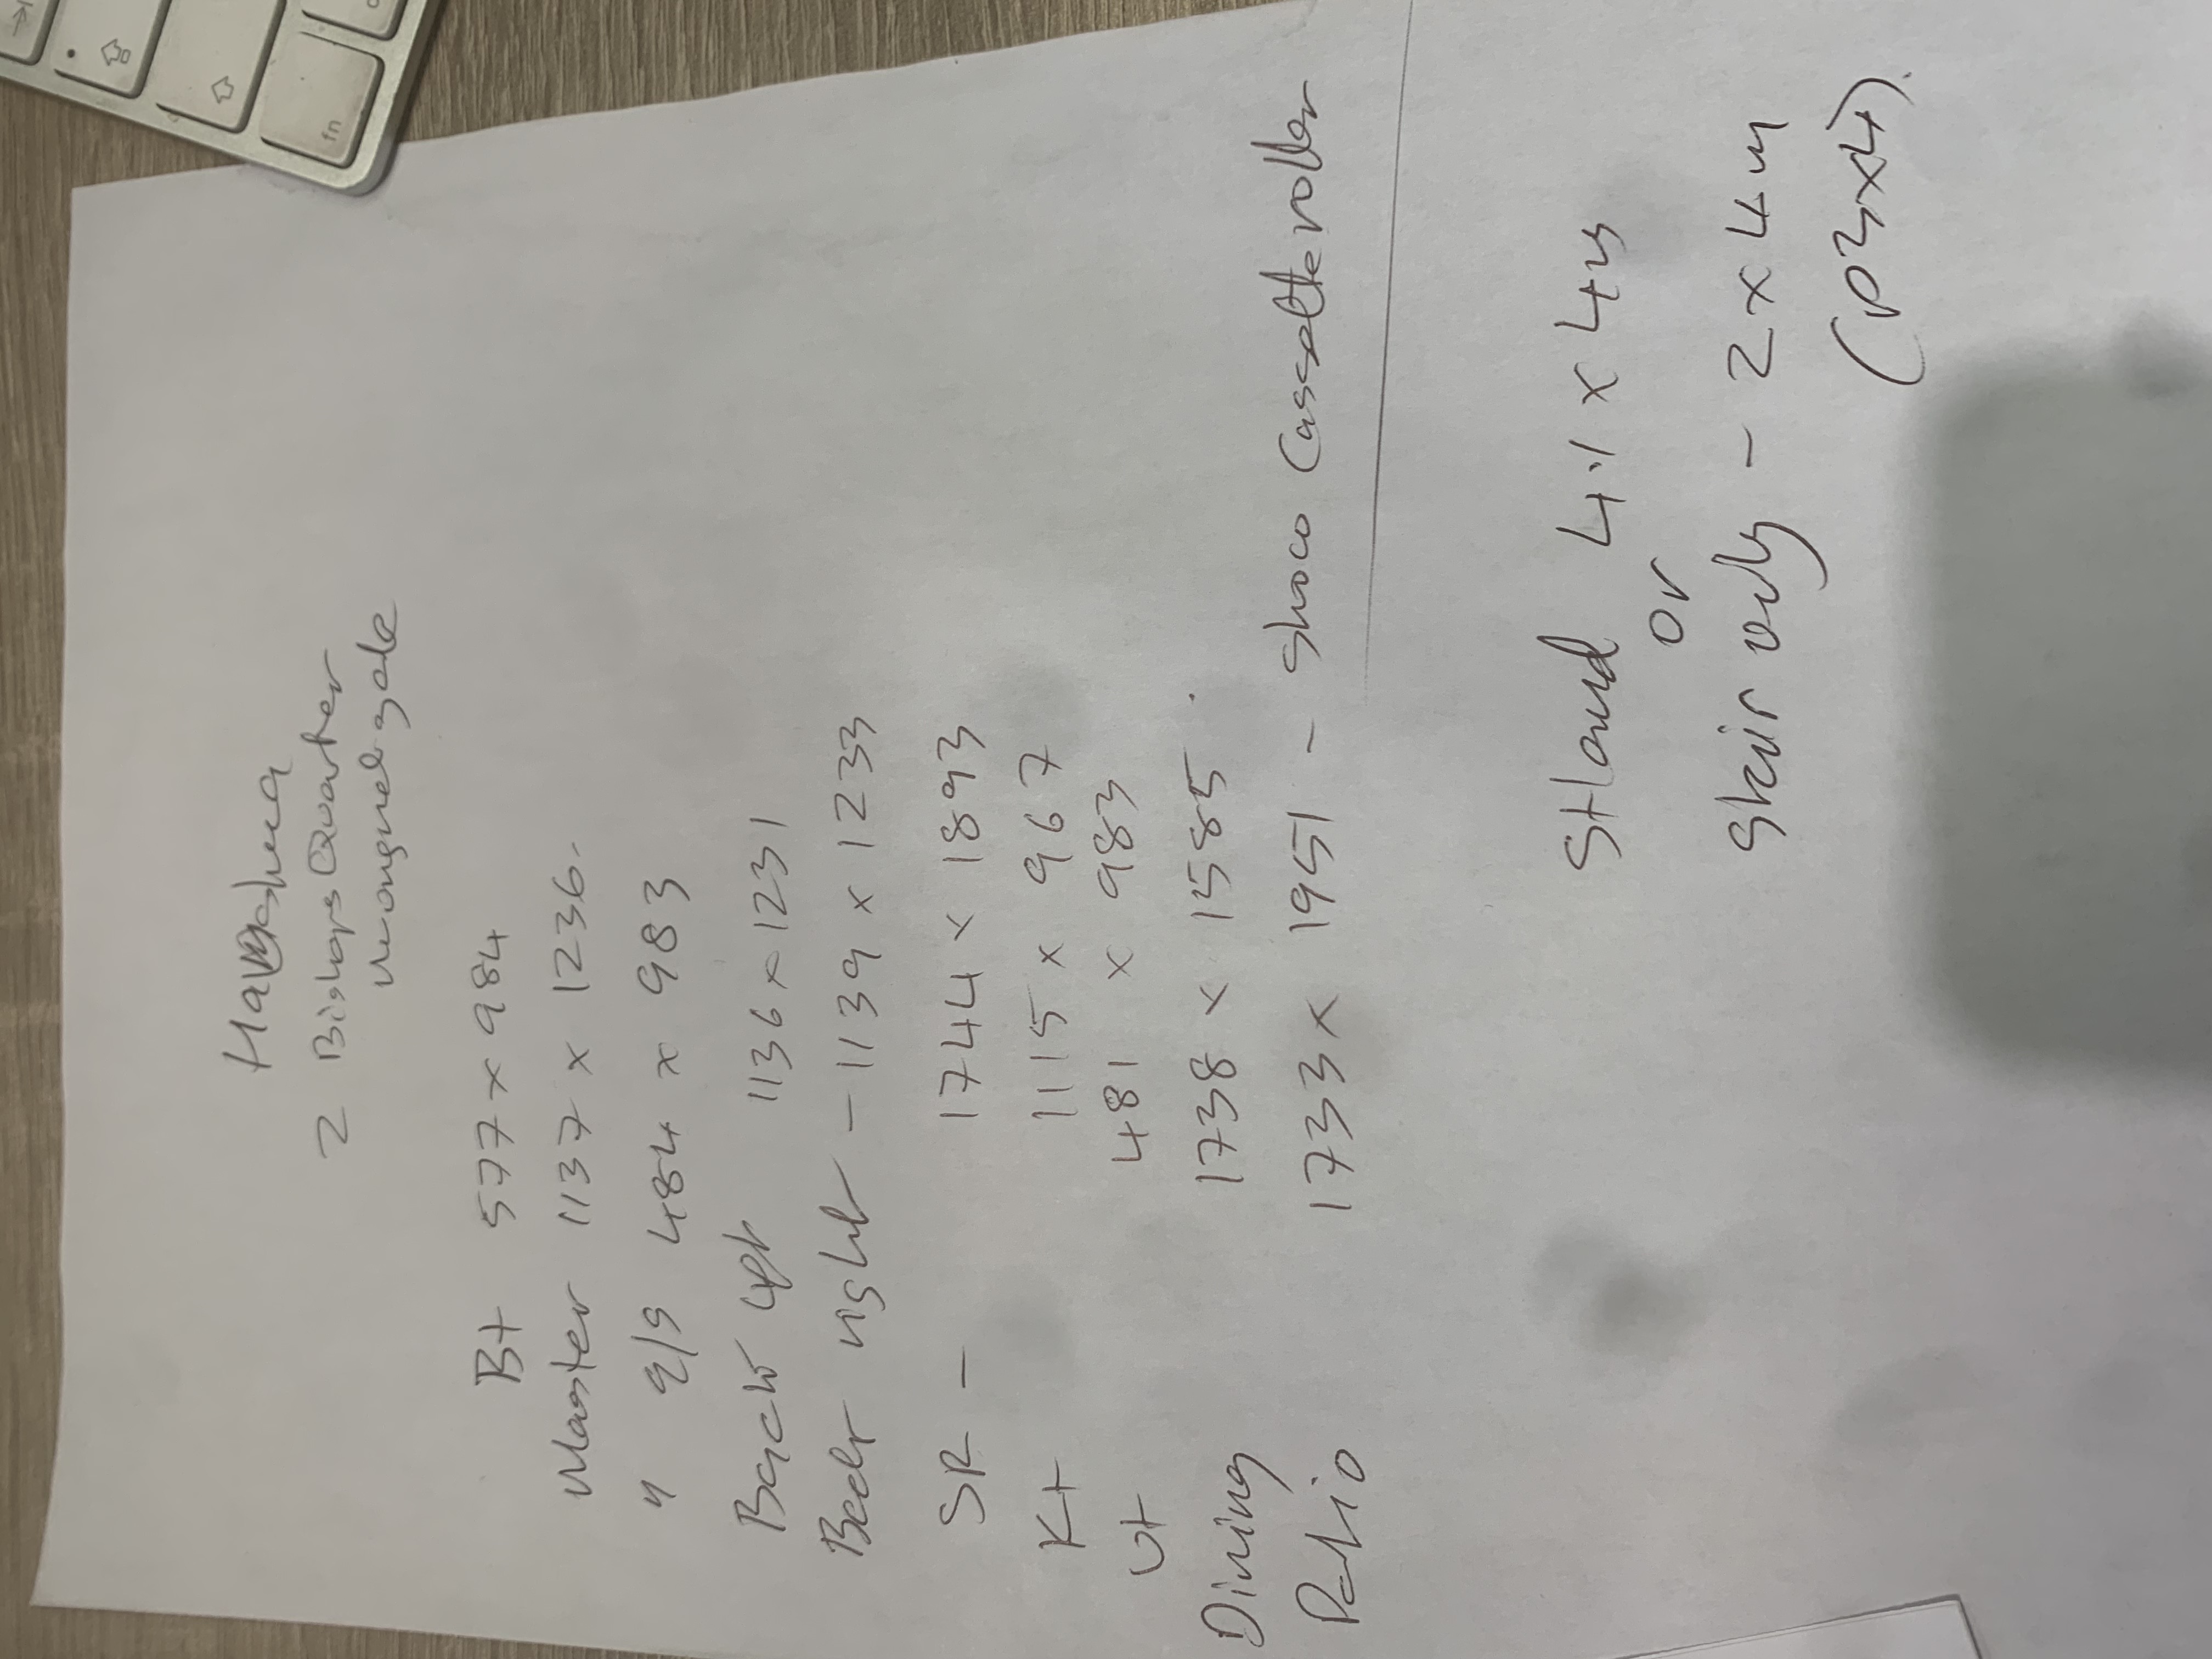 2 Bishops Quarter
Bt 577 x 984
Master 1137 x 1236.
" e/s 484 x 983
Back left 1136 x 1231
Back right - 1139 x 1233
SR - 1744 x 1893
Kt 1115 x 967
Ut 481 x 983
Dining 1738 x 1585.
Patio 1733 x 1951 - Shaco Cassette roller
StLand 4.1 x 4m
or
Stair only - 2 x 4m
(P3x4).
fn